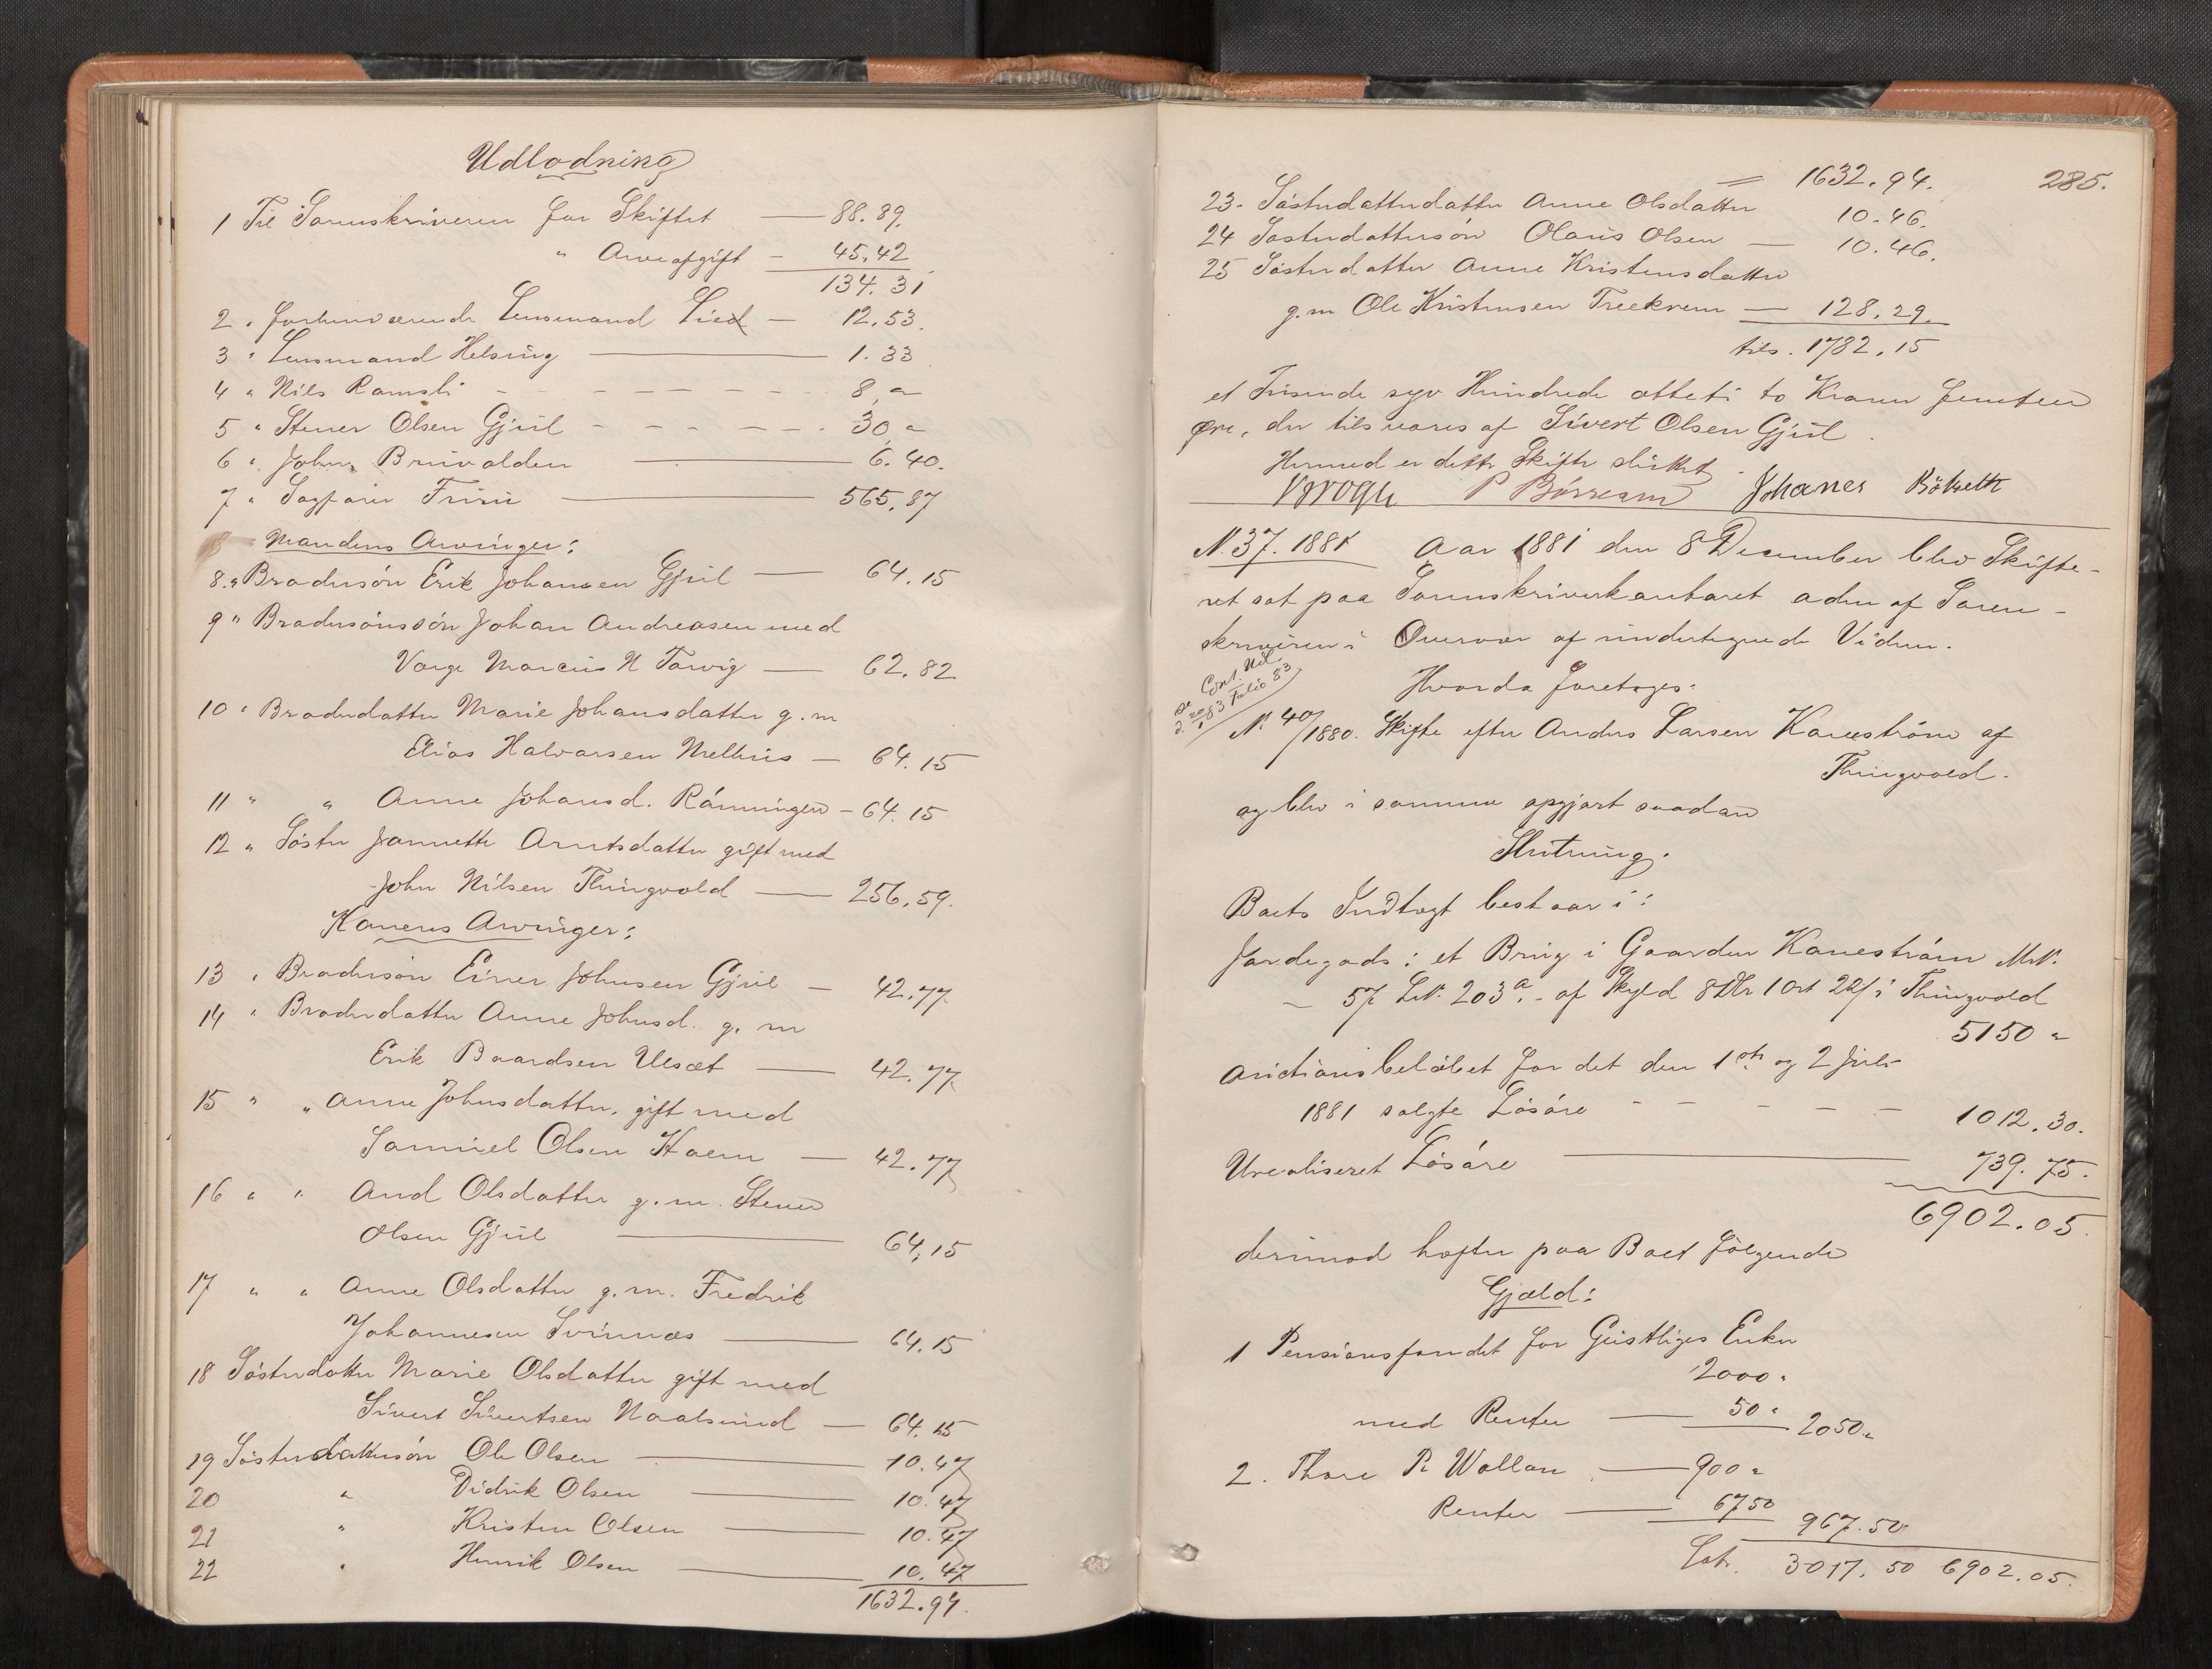 Udlodning
1 Til Sorenskriveren for Skiftet — 88.89.
" Arveafgift — 45.42
134.31
2 " forhenværende Lensmand Lied — 12.53.
3 " Lensmand Helsing — 1.33
4 " Nils Ramsli - - - - - - 8 "
5 " Stener Olsen Gjul - - - - - 30 "
6 " John Bruvolden — 6.40.
7 " Sagfører — 565.87
Mandens Arvinger:
8. " Brodersøn Erik Johansen Gjul — 64.15
9 " Brodersønssøn Johan Andreasen med
Værge Marcus N Torvig — 62.82
10 " Broderdatter Marie Johansdatter g. m
Elias Halvorsen Melhus — 64.15
11 " " Anne Johansd. Rønningen — 64.15
12 " Søster Jannette Arntsdatter gift med
John Nilsen Thingvold — 256.59.
Konens Arvinger:
13 " Brodersøn Einer Johnsen Gjul — 42.77
14 " Broderdatter Anne Johnsd. g. m
Erik Baardsen Ulsæt — 42.77
15 " " Anne Johnsdatter, gift med
Samuel Olsen Hoem — 42.77
16 " " And Olsdatter g. m. Stener
Olsen Gjul — 64.15
17 " " Anne Olsdatter g. m. Fredrik
Johannesen Svinnæs — 64.15
18 Søsterdatter Marie Olsdatter gift med
Sivert Sivertsen Naalsund — 64.15
19 Søsterdattersøn Ole Olsen — 10.47
20 " Didrik Olsen — 10.47
21 " Kristen Olsen — 10.47
22 " Henrik Olsen — 10.47
1632.94.
285.
= 1632.94.
23. Søsterdatterdatter Anne Olsdatter 10.46.
24 Søsterdattersøn Olaus Olsen — 10.46.
25 Søsterdatter Anne Kristensdatter
g. m Ole Kristensen Treekrem — 128.29.
tils. 1782.15
et Tusende syv Hundrede otteti to Kroner femten
Øre, der tilsvares af Sivert Olsen Gjul.
Hermed er dette Skifte sluttet.
Krogh P Johanes
N. 37. 1881 Aar 1881 den 8 December blev Skifte-
ret sat paa Sorenskriverkontoret adm af Soren-
skriveren i Overvær af undertegnede Vidner.
Hvorda foretoges:
N. 40/1880. Skifte efter Anders Larsen Kanestrøm af
Thingvold.
og blev i samme opgjort saadan
Slutning.
Boets Indtægt bestaar i:
Jordegods: et Brug i Gaarden Kanestrøm M.N.
57 L.N. 203 a. - af Skyld 8 Dlr 1 Ort 22 i Thingvold
5150 "
Auctionsbeløbet for det den 1ste og 2 Juli
1881 solgte Løsøre - - - - - 1012.30.
Urealiseret Løsøre — 739.75.
6902.05.
derimod hæfter paa Boet følgende
Gjæld:
1 Pensionsfondet for Geistliges Enker
2000 "
med Renter — 50 " 2050 "
2. Thore P. Wollan — 900 "
Renter — 67 50 967.50
Lat. 3017.50 6902.05.